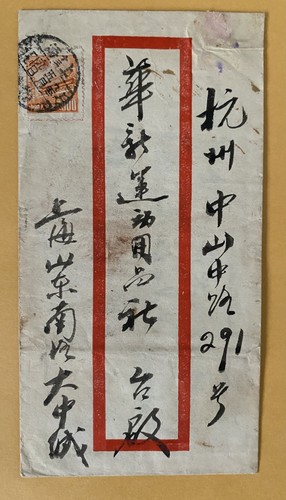 杭州中山中路291号
華新運动用品社 台啟
上海山东南路大中城